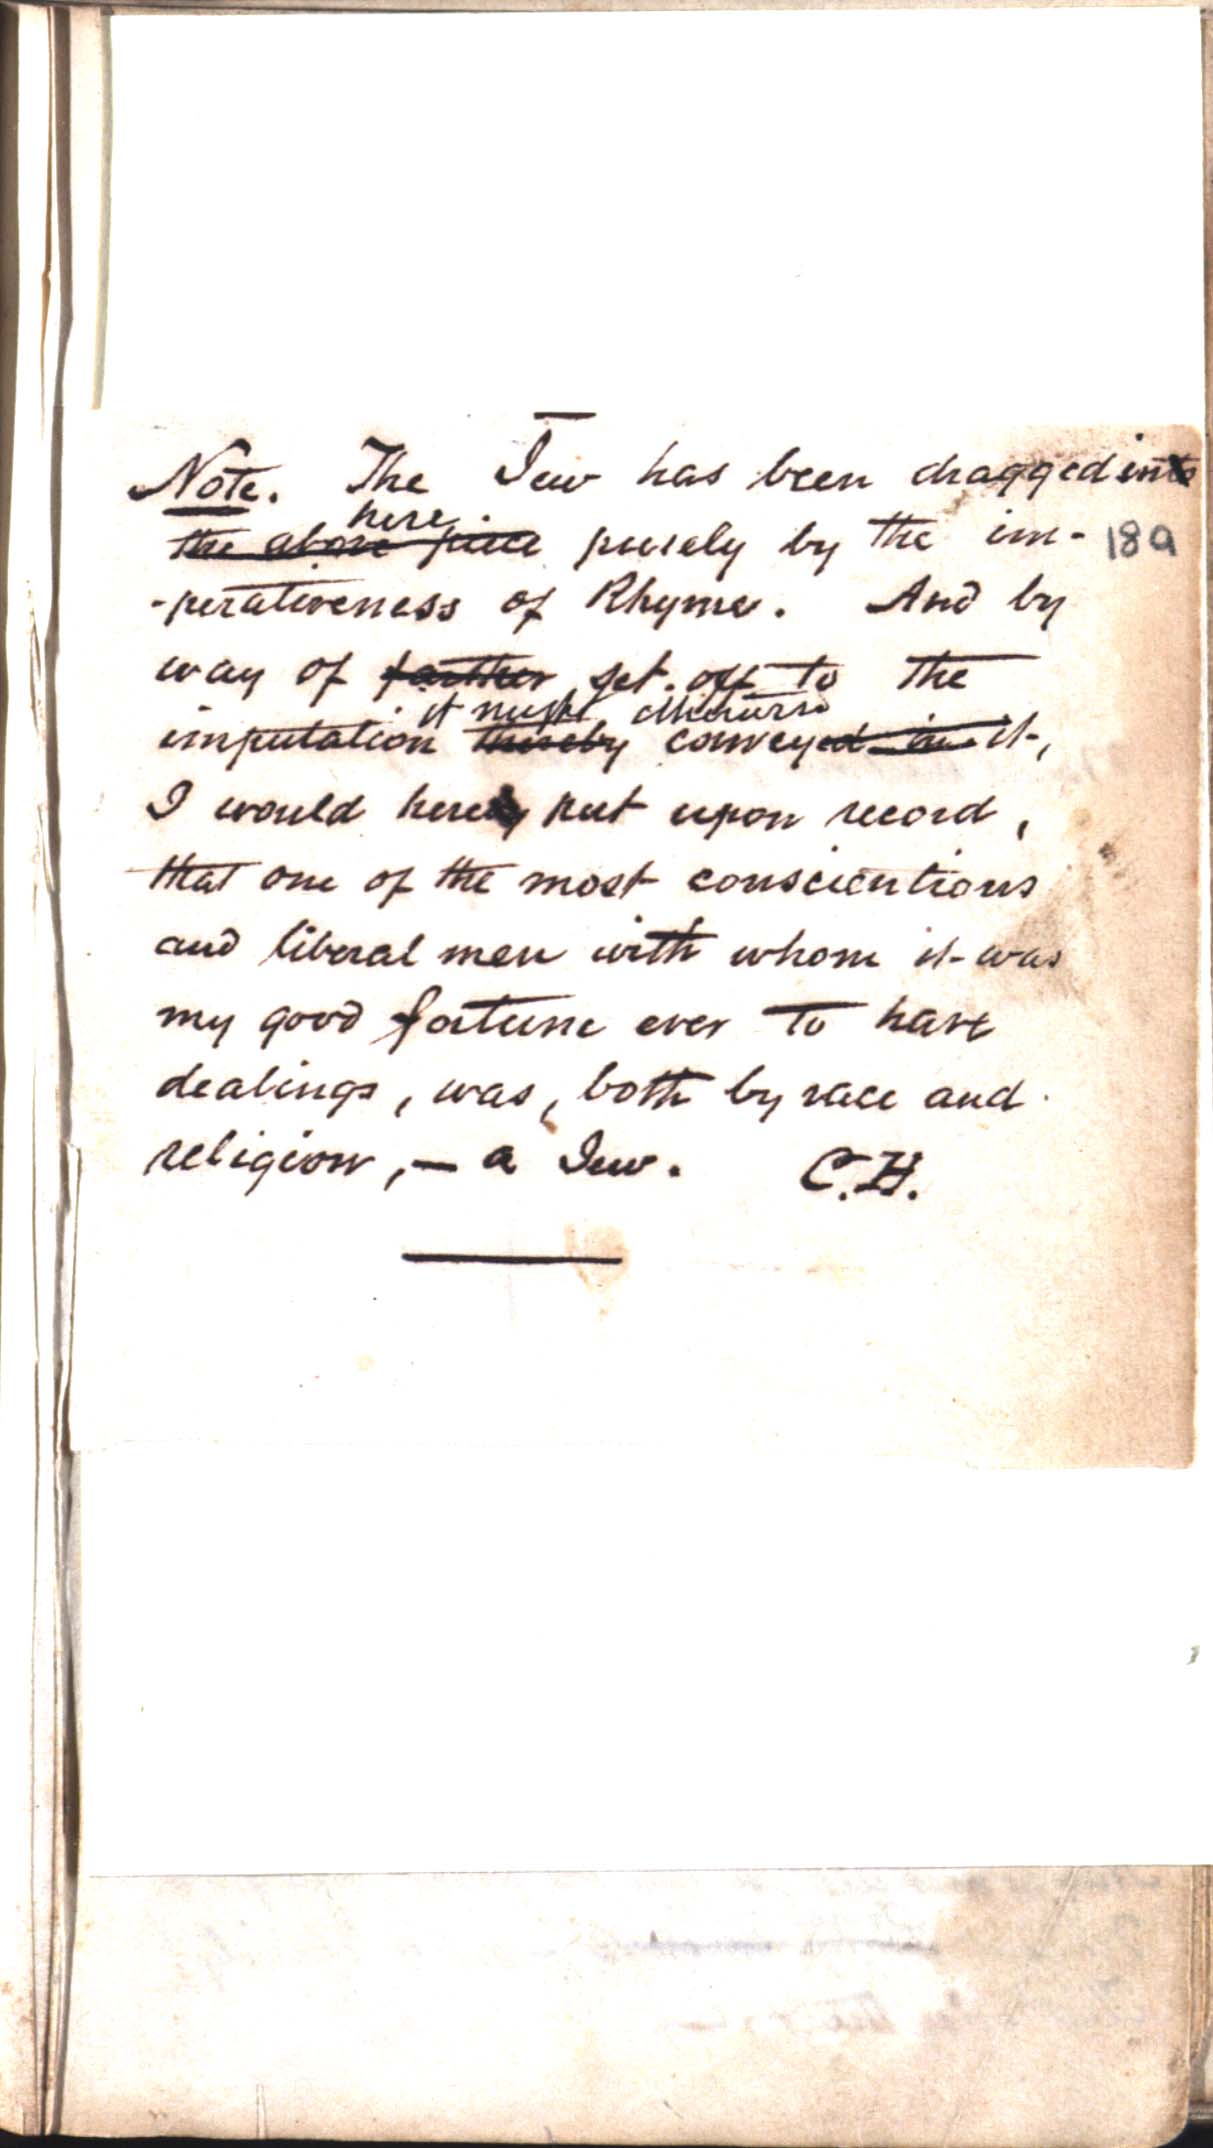 Note. The Jew has been dragged into
here
the above piece purely by the im-
-perativeness of Rhyme. And by
way of farther set-off to the
it might otherwise
imputation thereby conveyed in it,
I would hereby put upon record,
that one of the most conscientious
and liberal men with whom it was
my good fortune ever to have
dealings, was, both by race and
religion,— a Jew. C.H.
189